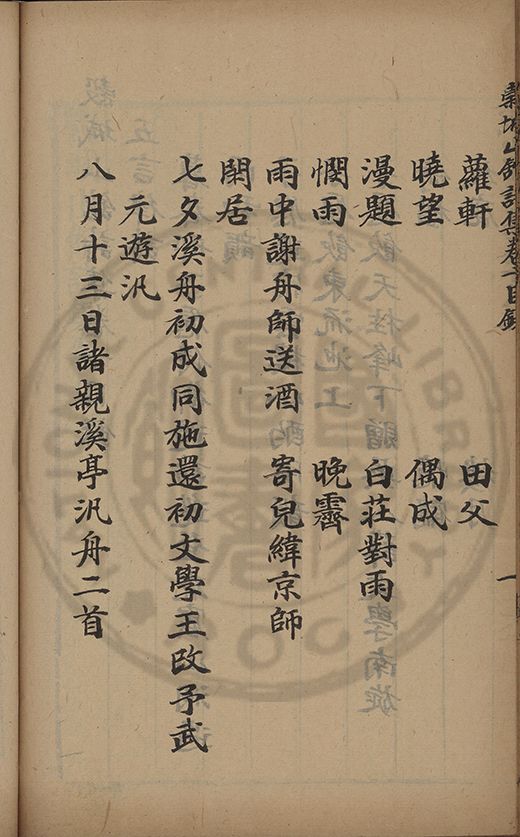 蘿軒 田父
曉望 偶成
漫題 白莊對雨
憫雨 晚霽
雨中謝舟師送酒 寄兒緯京師
閑居
七夕溪舟初成同施還初文學王改予武
元遊汎
八月十三日諸親溪亭汎舟二首